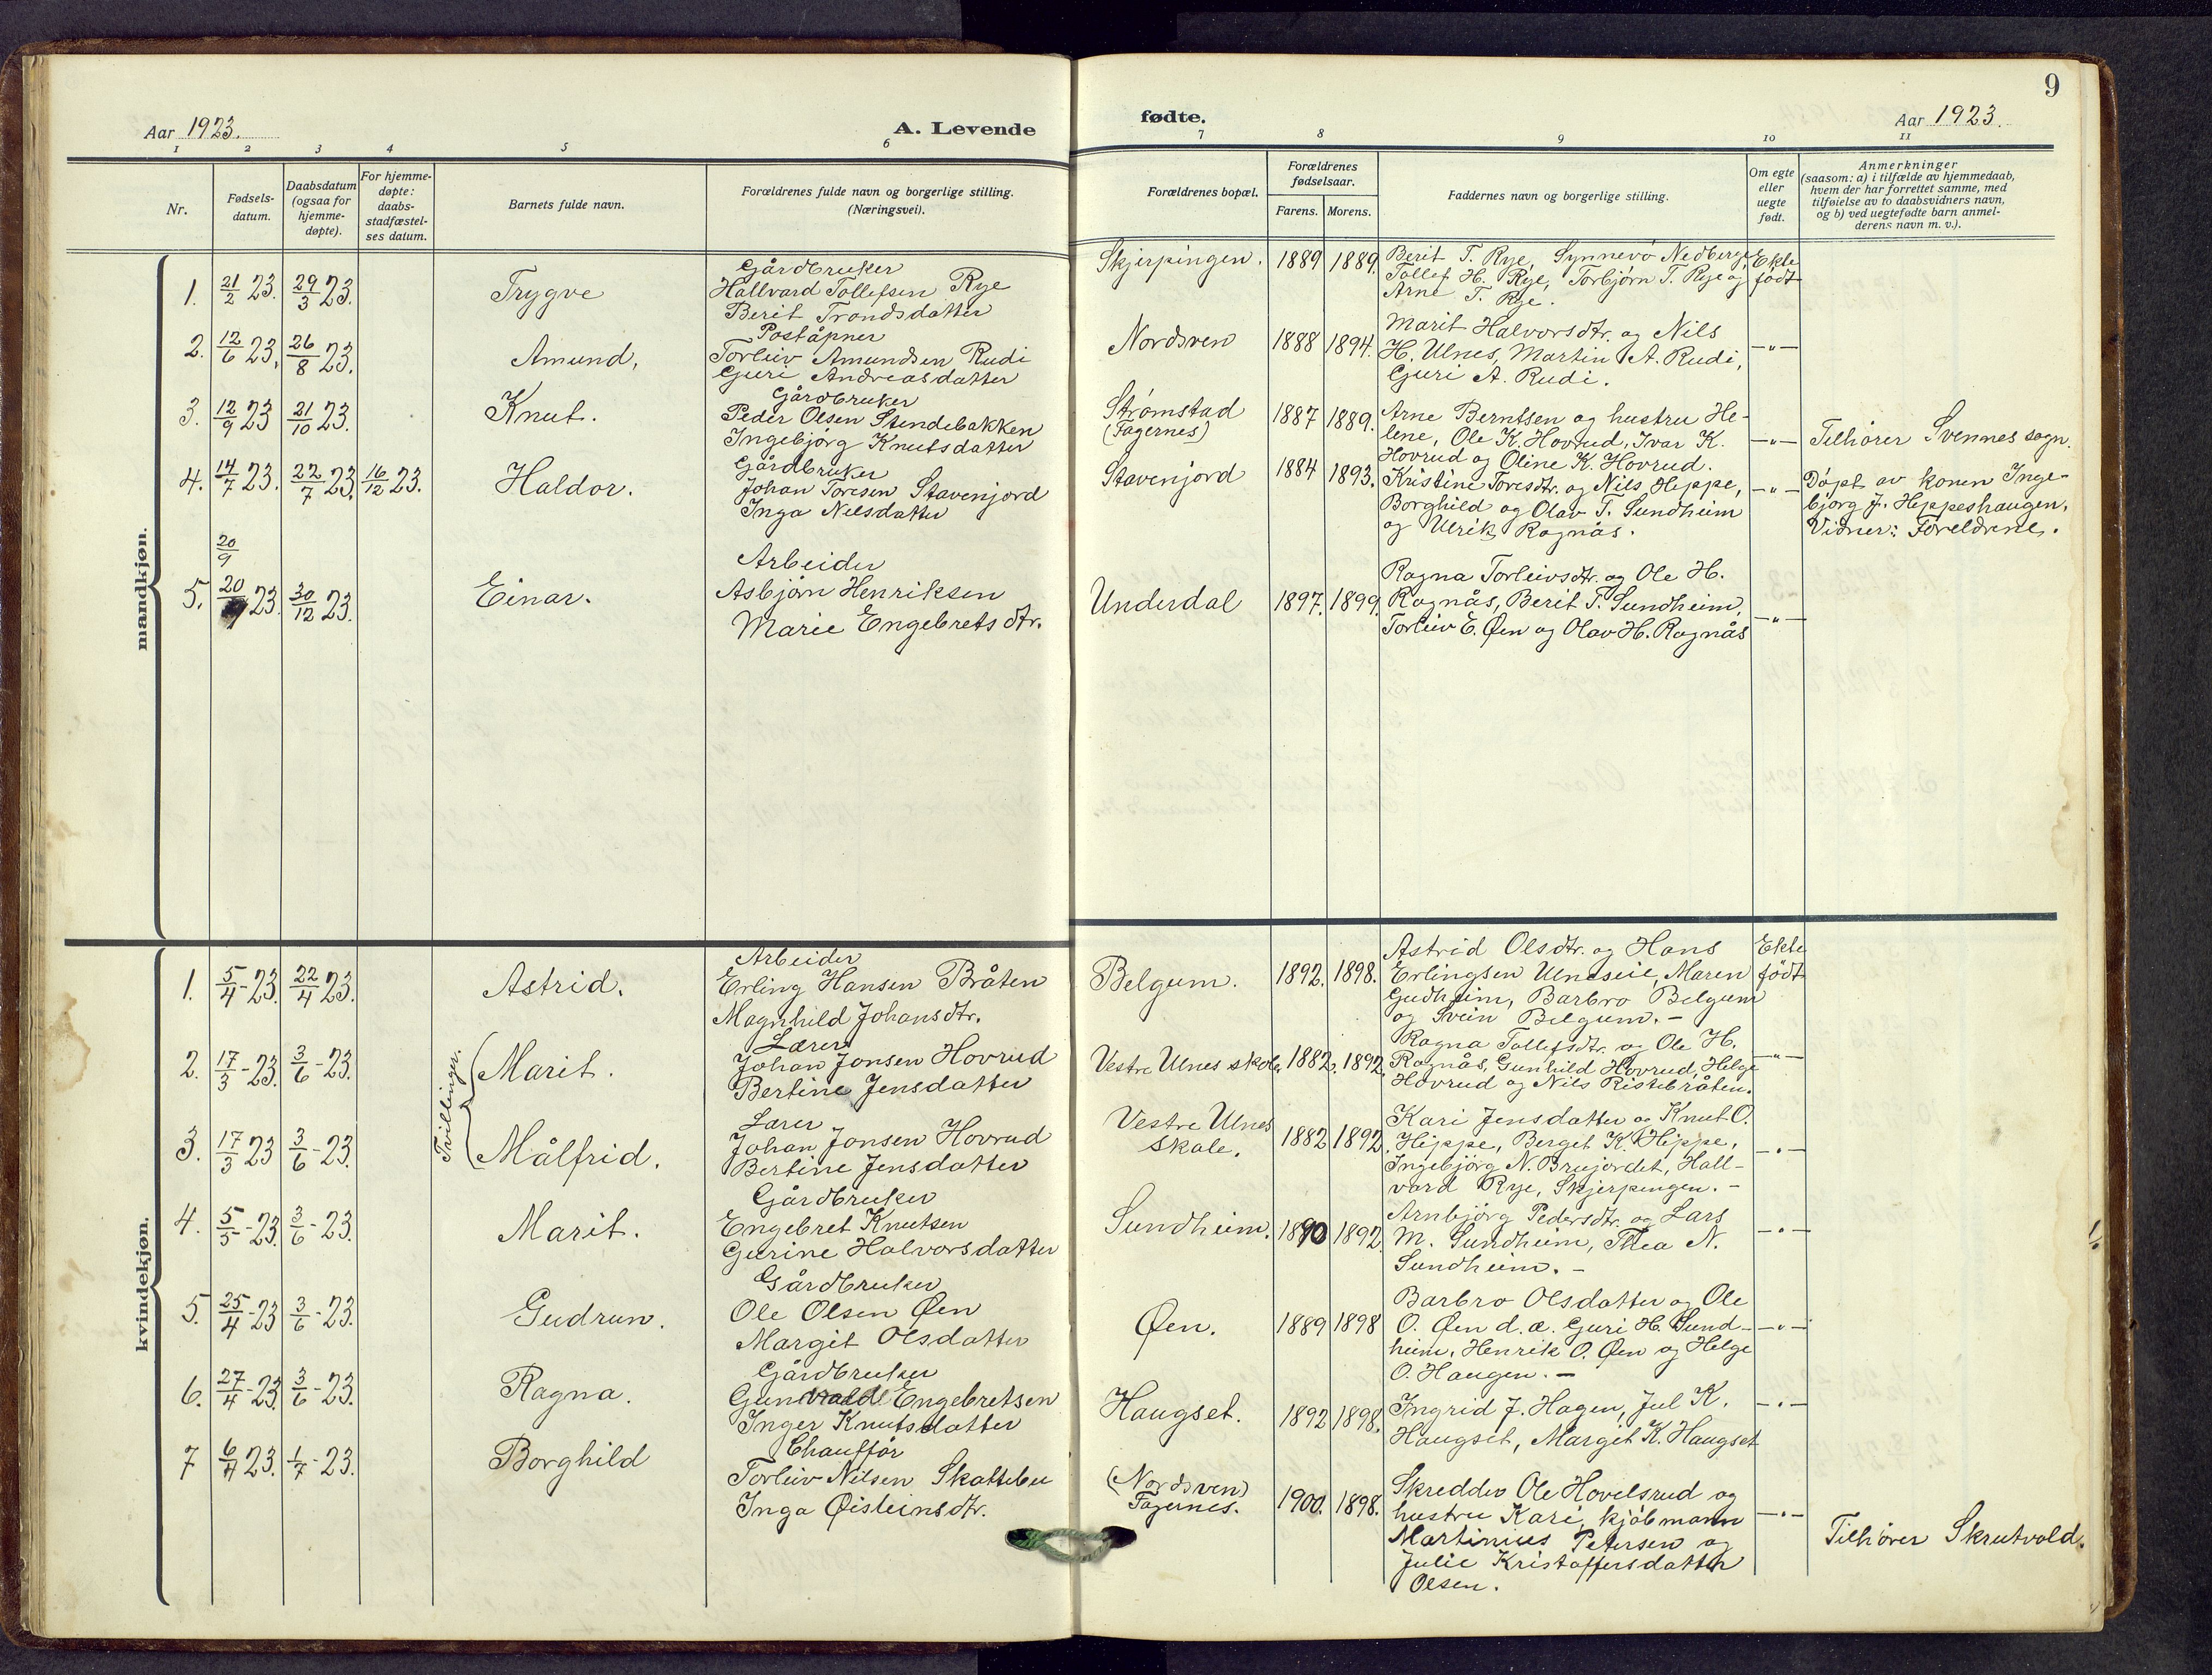 9
Aar 1923.
A. Levende
fødte.
Aar 1923.
1 2 3 4 5 6 7 8 9 10 11
Nr.
Fødsels-
datum.
Daabsdatum
(ogsaa for
hjemme-
døpte).
For hjemme-
døpte:
daabs-
stadfæstel-
ses datum.
Barnets fulde navn.
Forældrenes fulde navn og borgerlige stilling.
(Næringsvei).
Forældrenes bopæl.
Forældrenes
fødselsaar.
Farens. Morens.
Faddernes navn og borgerlige stilling.
Om egte
eller
uegte
født.
Anmerkninger
(saasom: a) i tilfælde av hjemmedaab,
hvem der har forrettet samme, med
tilføielse av to daabsvidners navn,
og b) ved uegtefødte barn anmel-
derens navn m. v.).
mandkjøn.
1. 21/2 23. 29/3 23. Trygve
Gårdbruker
Hallvard Tollefsen Rye
Berit Trondsdatter
Skjerpingen. 1889 1889.
Berit T. Rye, Synnevø Nedberge
Tollef H. Rye, Torbjørn T. Rye og
Arne T. Rye.
Ekte
født
2. 12/6 23. 26/8 23. Amund,
Poståpner
Torleiv Amundsen Rudi
Guri Andreasdatter
Nordsven 1888 1894.
Marit Halvorsdtr. og Nils
H. Ulnes, Martin A. Rudi,
Guri A. Rudi.
—"—
3. 12/9 23 21/10 23. Knut.
Gårdbruker
Peder Olsen Stendebakken
Ingebjørg Knutsdatter
Strømstad
(Fagernes)
1887 1889.
Arne Berntsen og hustru He-
lene, Ole K. Hovrud, Ivar K.
Hovrud og Oline K. Hovrud.
—"— Tilhører Svennes sogn.
4. 14/7 23. 22/7 23 16/12 23. Haldor.
Gårdbruker
Johan Toresen Stavenjord
Inga Nilsdatter
Stavenjord 1884 1893.
Kristine Toresdtr. og Nils Hippe,
Borghild og Olav T. Sundheim
og Ulrik Rognås.
—"—
Døpt av konen Inge-
bjørg J. Heppeshaugen.
Vidner: Foreldrene.
20/9
5. 20/9 23. 30/12 23. Einar.
Arbeider
Asbjørn Henriksen
Marie Engebretsdtr.
Underdal 1897. 1899.
Ragna Torleivsdtr. og Ole H.
Rognås, Berit T. Sundheim,
Torleiv E. Øen og Olav H. Rognås
—"—
kvindekjøn.
1. 5/4-23. 22/4 23. Astrid.
Arbeider
Erling Hansen Bråten
Magnhild Johansdtr.
Belgum. 1892. 1898.
Astrid Olsdtr. og Hans
Erlingsen Ulneseie, Maren
Gudheim, Barbro Belgum
og Svein Belgum.-
Ekte
født
Tvillinger.
2. 17/3-23. 3/6-23. Marit.
Lærer
Johan Jonsen Hovrud
Bertine Jensdatter
Vestre Ulnes skole 1882. 1892.
Ragna Tollefsdtr. og Ole H.
Rognås, Gunhild Hovrud, Helge
Hovrud og Nils Ristebråten.
—"—
3. 17/3 23 3/6-23. Målfrid.
Lærer
Johan Jonsen Hovrud
Bertine Jensdatter
Vestre Ulnes
skole.
1882 1892
Kari Jensdatter og Knut O.
Hippe, Berget K. Hippe,
Ingebjørg N. Brujordet, Hall-
vard Rye, Skjerpingen.-
—"—
4. 5/5-23. 3/6-23. Marit.
Gårdbruker
Engebret Knutsen
Gurine Halvorsdatter
Sundheim. 1890 1892.
Arnbjørg Pedersdtr. og Lars
M. Sundheim, Thea N.
Sundheim.-
—"—
5. 25/4-23 3/6-23. Gudrun.
Gårdbruker
Ole Olsen Øen
Margit Olsdatter
Øen. 1889 1898
Barbro Olsdatter og Ole
O. Øen d. æ. Guri H. Sund-
heim, Henrik O. Øen og Helge
O. Haugen.-
—"—
6. 27/4-23 3/6-23. Ragna.
Gårdbruker
Gunvald Engebretsen
Inger Knutsdatter
Haugset. 1892 1898.
Ingrid J. Hagen, Jul K.
Haugset, Marget K. Haugset
—"—
7 6/4 23. 1/7-23. Borghild
Chauffør
Torleiv Nilsen Skattebu
Inga Øisteinsdtr.
(Nordsven)
Fagernes.
1900. 1898.
Skredder Ole Hovelsrud og
hustru Kari, kjøbmann
Martinius Petersen og
Julie Kristoffersdatter
Olsen.
—"—
Tilhører Skrutvold.